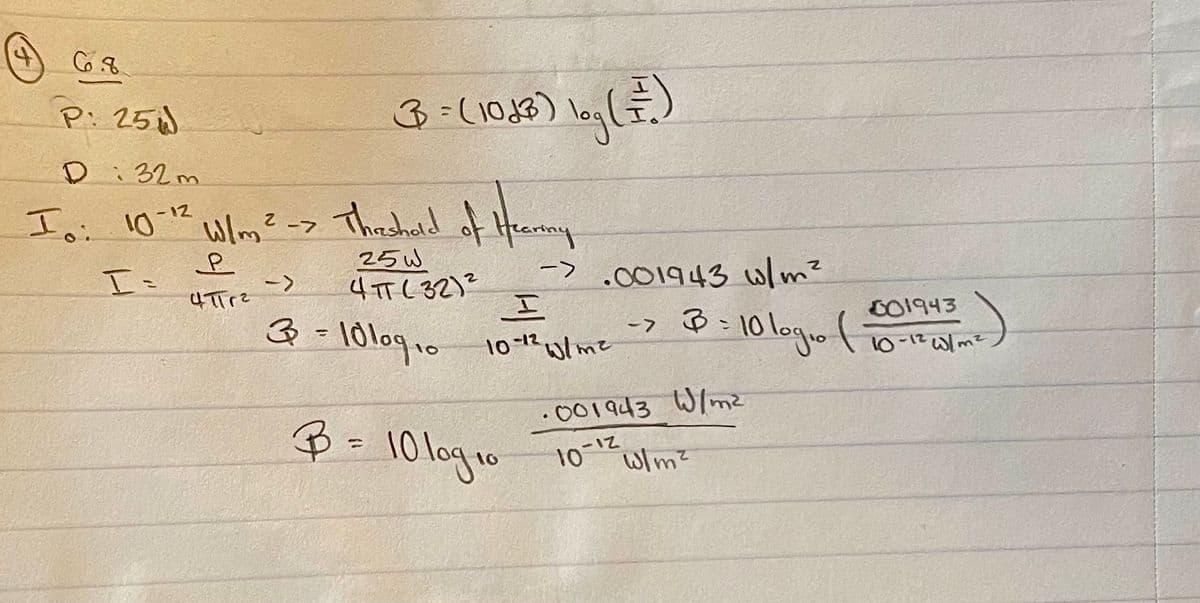 ④ 6.8
P: 25W β = (10dB) log(I/I₀)
D : 32m
I₀: 10⁻¹² W/m² -> Threshold of Hearing
I = P/4πr² -> 25W/4π(32)² -> .001943 W/m²
β = 10log₁₀ I/10⁻¹² W/m² -> β = 10 log₁₀ (.001943/10⁻¹² W/m²)
β = 10 log₁₀ .001943 W/m²/10⁻¹² W/m²